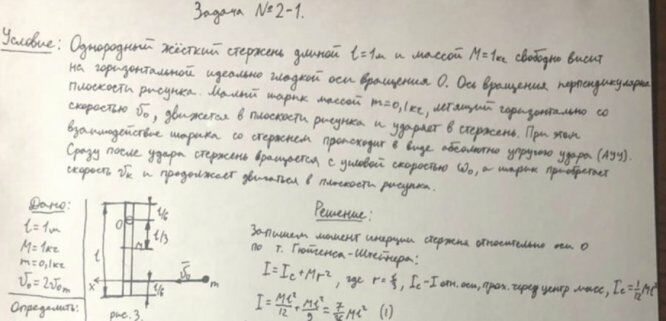 Задача №2-1.
Условие: Однородный жёсткий стержень длиной l=1м и массой M=1кг свободно висит
на горизонтальной идеально гладкой оси вращения О. Ось вращения перпендикулярна
плоскости рисунка. Малый шарик массой m=0,1кг, летящий горизонтально со
скоростью v₀, движется в плоскости рисунка и ударяет в стержень. При этом
взаимодействие шарика со стержнем происходит в виде абсолютно упругого удара (АУУ).
Сразу после удара стержень вращается с угловой скоростью ω₀, а шарик приобретает
скорость vк и продолжает двигаться в плоскости рисунка.
Дано:
l=1м
M=1кг
m=0,1кг
v₀=2v₀m
Определить:
O
l/6
l/3
l
M
x
v₀
m
l/6
рис. 3.
Решение:
Запишем момент инерции стержня относительно оси О
по т. Гюйгенса-Штейнера:
I=Ic+Mr², где r=l/3, Ic-I отн. оси, прох. через центр масс, Ic=1/12Ml²
I=Ml²/12+Ml²/9=7/36Ml² (1)